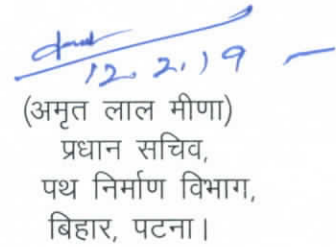 12.2.19
(अमृत लाल मीणा)
प्रधान सचिव,
पथ निर्माण विभाग,
बिहार, पटना।